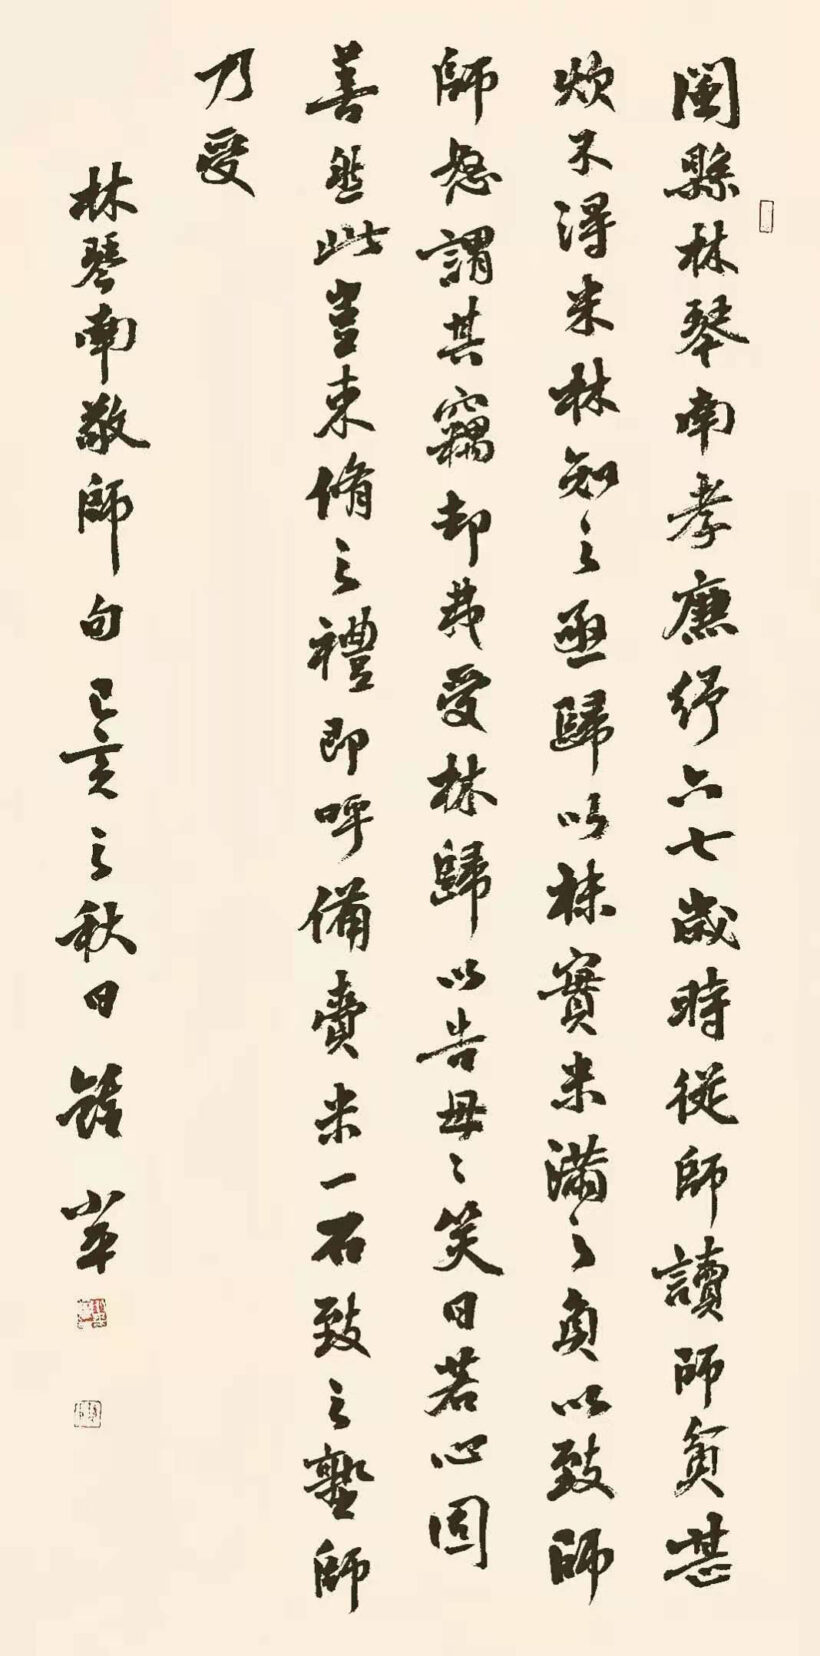 閩縣林琴南孝廉紓六七歲時從師讀師貧甚
炊不得米林知之亟歸以袜實米滿之負以致師
師怒謂其竊却弗受林歸以告母〻笑曰若心固
善然此豈束脩之禮即呼備賫米一石致之塾師
乃受
林琴南敬師句己亥之秋日